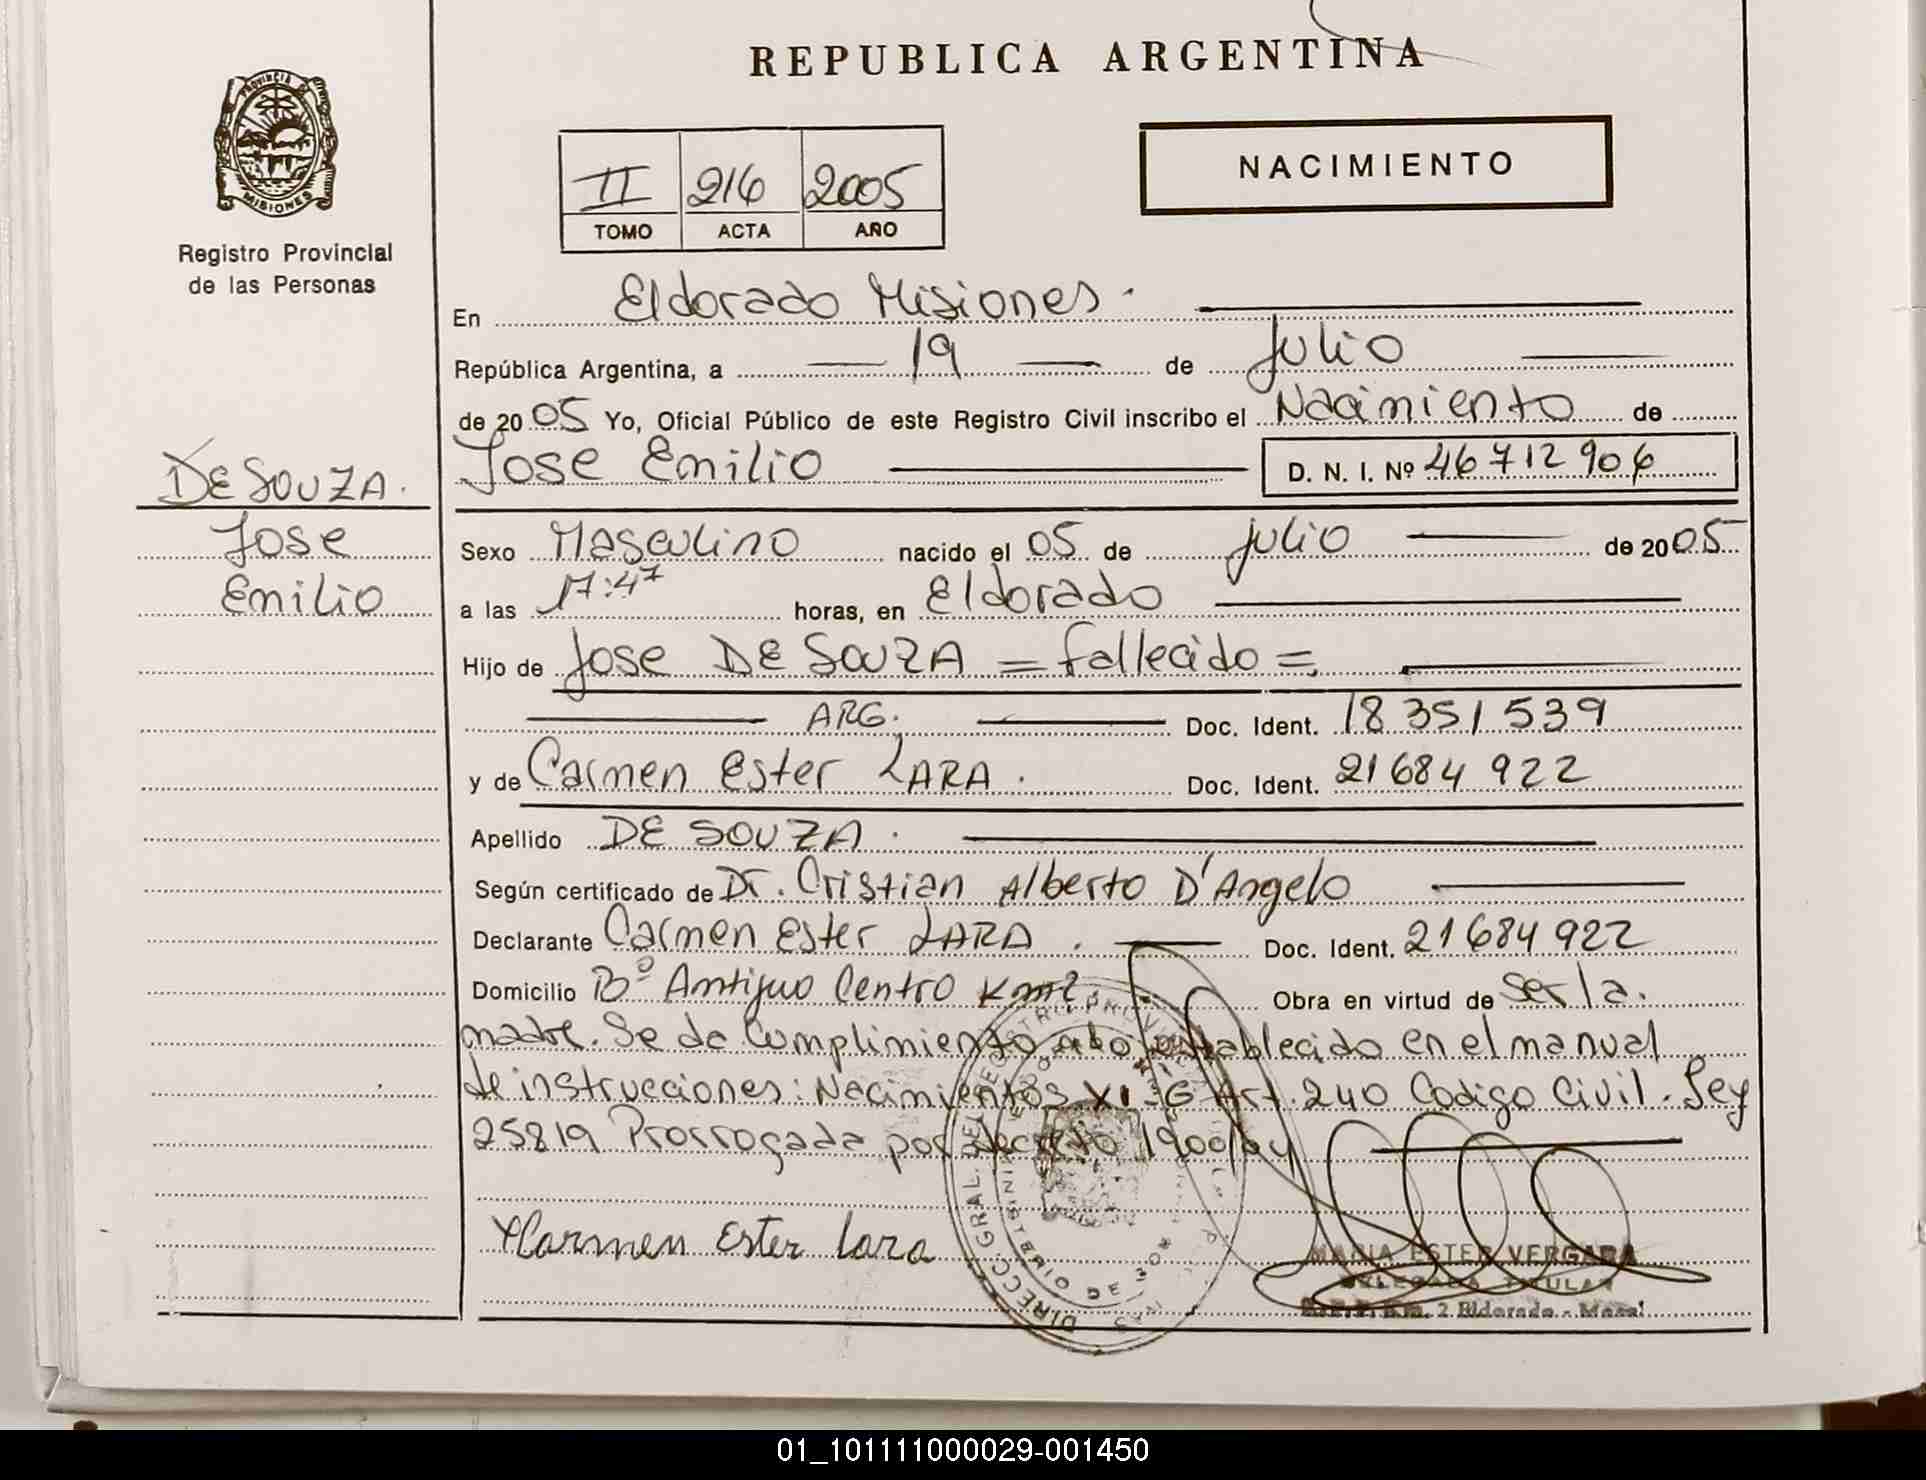 REPUBLICA ARGENTINA
PROVINCIA DE
MISIONES
Registro Provincial
de las Personas
II 216 2005
TOMO ACTA AÑO
NACIMIENTO
En Eldorado Misiones.
República Argentina, a 19 de Julio
de 2005 Yo, Oficial Público de este Registro Civil inscribo el Nacimiento de
Jose Emilio D. N. I. Nº 46 712 906
DE SOUZA.
Jose
Emilio
Sexo Masculino nacido el 05 de julio de 2005
a las 17:47 horas, en Eldorado
Hijo de Jose DE SOUZA = fallecido =
ARG. Doc. Ident. 18 351 539
y de Carmen Ester LARA. Doc. Ident. 21 684 922
Apellido DE SOUZA.
Según certificado de Dr. Cristian Alberto D'Angelo
Declarante Carmen Ester LARA. Doc. Ident. 21 684 922
Domicilio Bº Antiguo Centro Km 2. Obra en virtud de Ser la
madre. Se da Cumplimiento a lo establecido en el manual
de instrucciones: Nacimientos XI-G Art. 240 Codigo Civil. Ley
25819 Prorrogada por decreto 1900/04
Carmen Ester Lara
MARIA ESTER VERGARA
DELEGADA TITULAR
Km. 2 Eldorado - Mnes.
DIRECC. GRAL. DEL REGISTRO PROVINCIAL
01_101111000029-001450